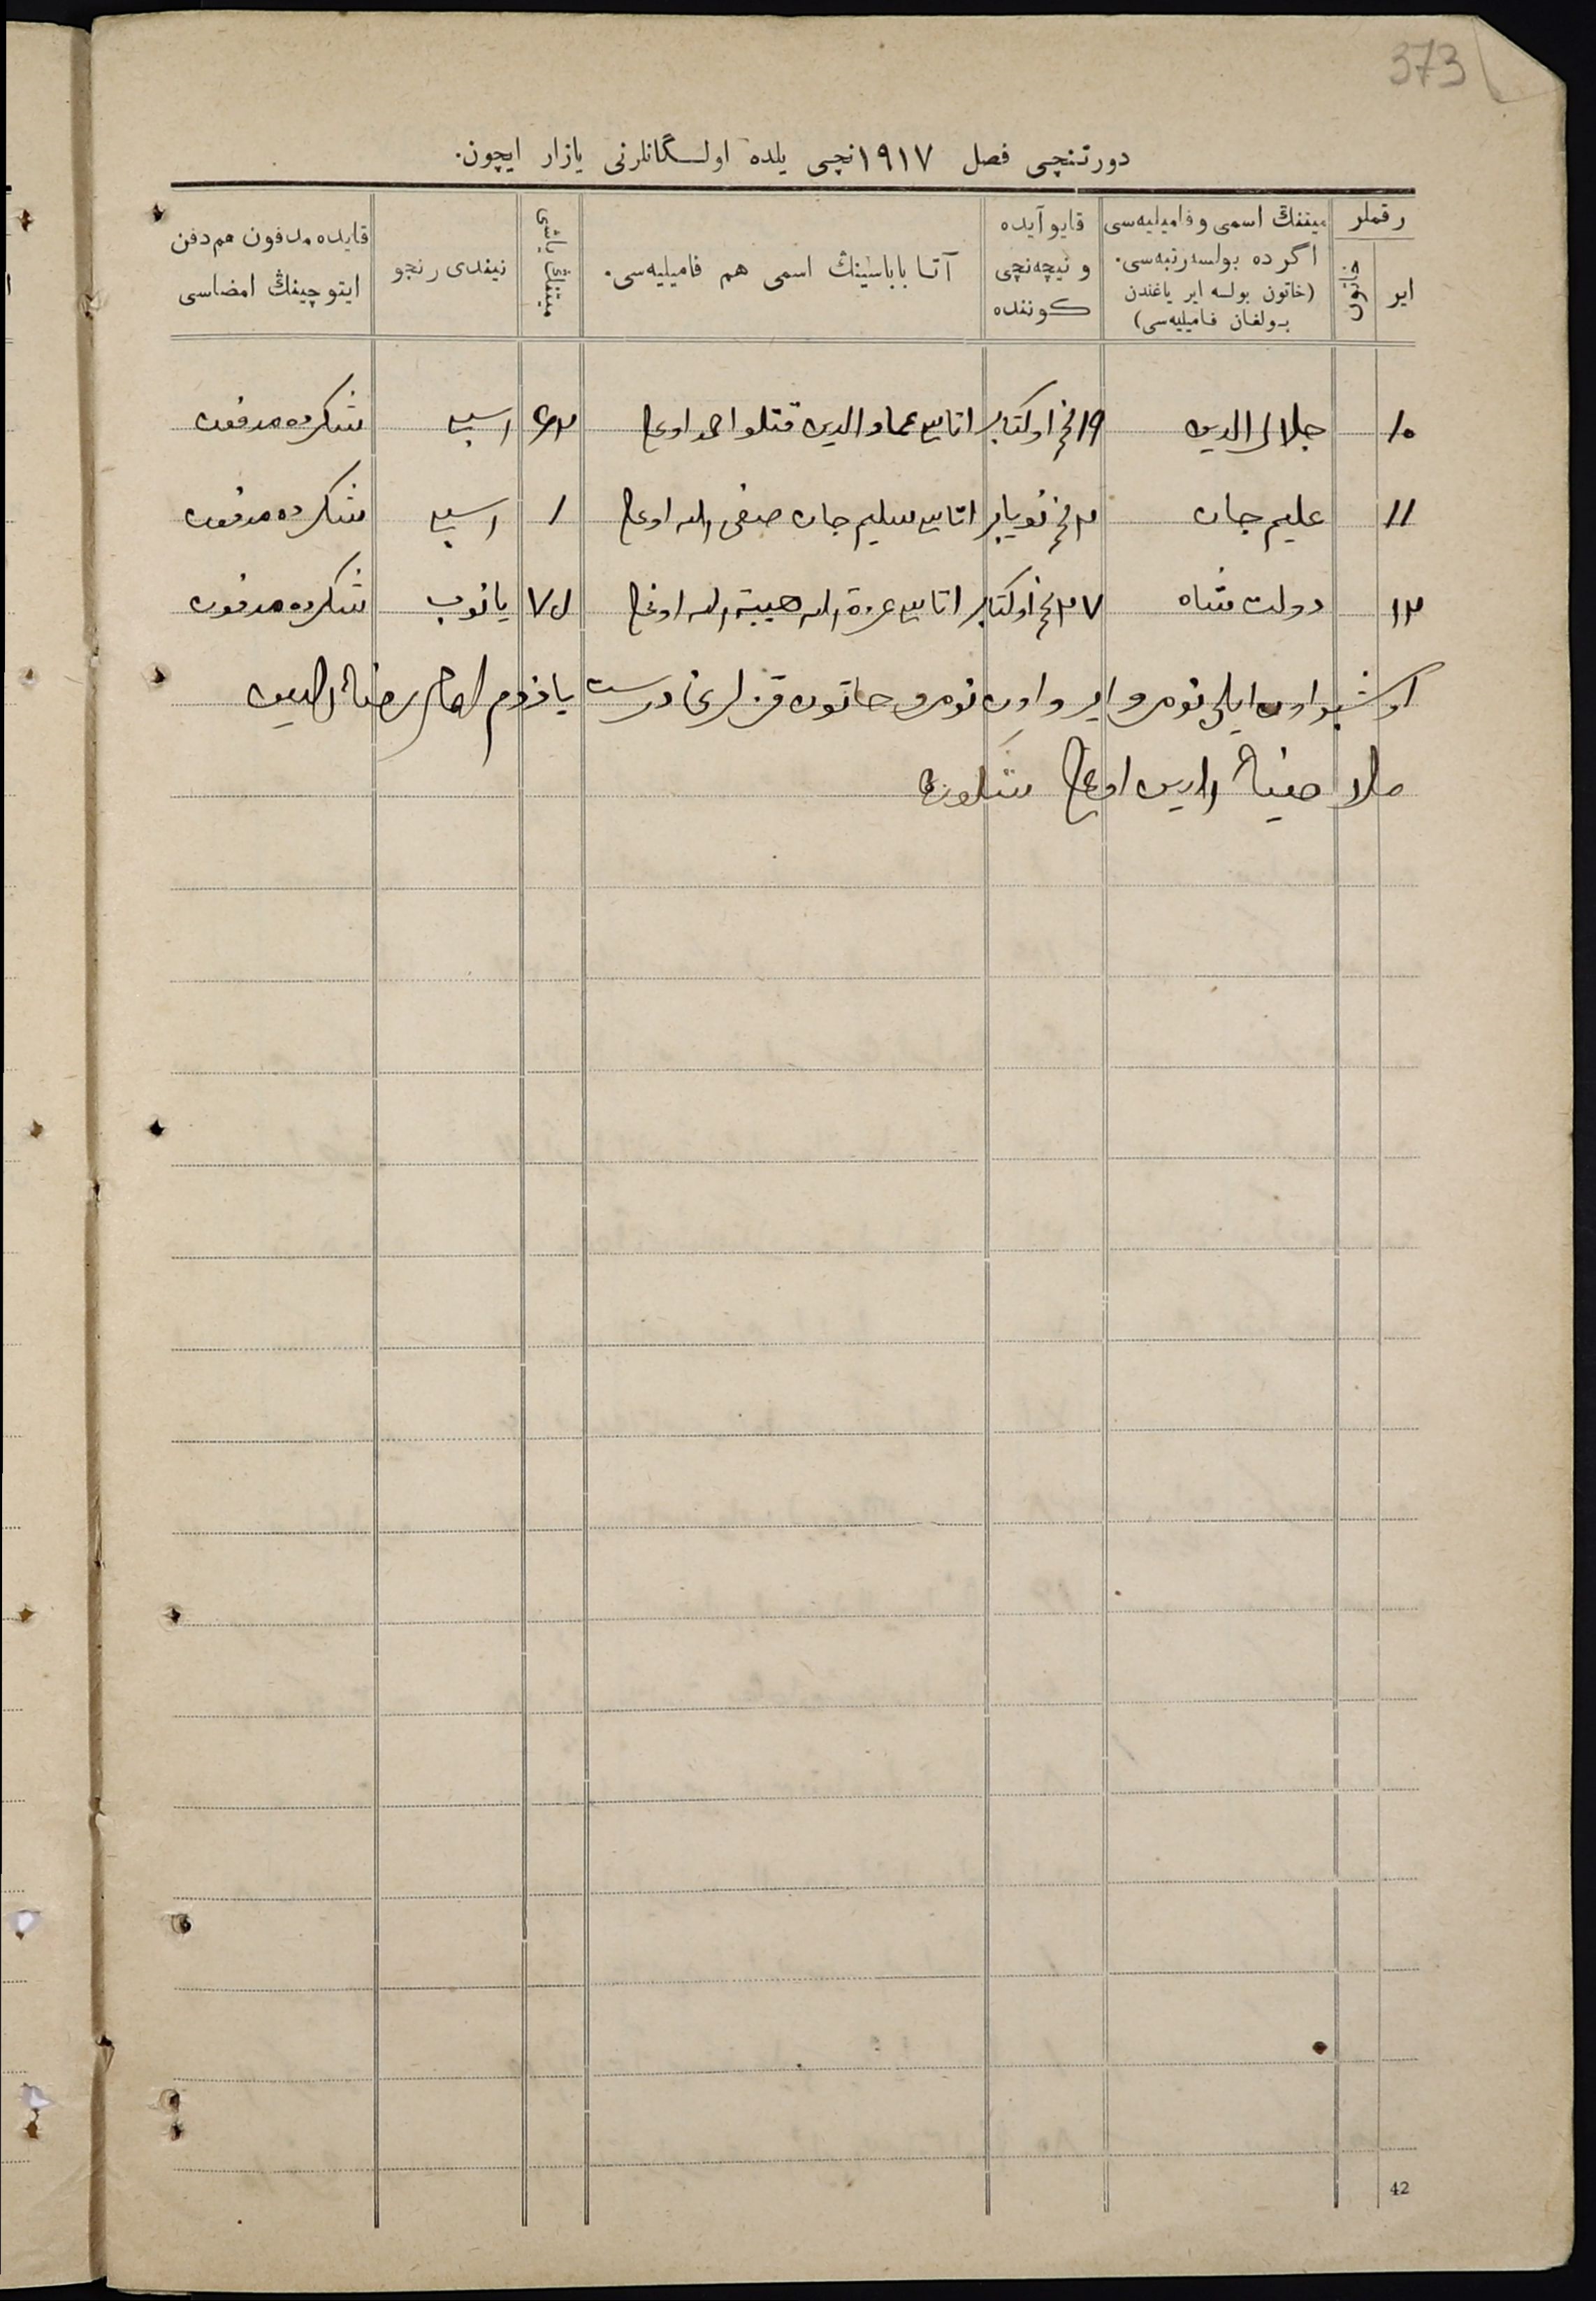 373
دورتنچی فصل ۱۹۱۷نچی یلده اولـگانلرنی یازار ایچون.
رقملر
ایر
خاتون
میتنڭ اسمی و فامیلیه‌سی
اگرده بولسه رتبه‌سی.
(خاتون بولسه ایر یاغندن
بولغان فامیلیه‌سی)
قایو آیده
و نیچه‌نچی
كوننده
آتا باباسینڭ اسمی هم فامیلیه‌سی.
میتنڭ یاشی
نیندی رنجو
قایده مدفون هم دفن
ایتوچینڭ امضاسی
۱۰ جلال الدین ۱۹نچی اوکتابر اتاسی عماد الدین قتلواحمد اوغلی شکرده مدفون
۱۱ علیم جان ۲نچی نویابر اتاسی سلیم جان صفی الله اوغلی ۱ شکرده مدفون
۱۲ دولت شاه ۲۷نچی اوکتابر اتاسی عزة الله هیبة الله اوغلی شکرده مدفون
اوشبو اون ایکی نومر ایر و اون نومر خاتون قزلرنی درست یازدم امام رضاء الدین
ملا ضیاء الدین اوغلی
42